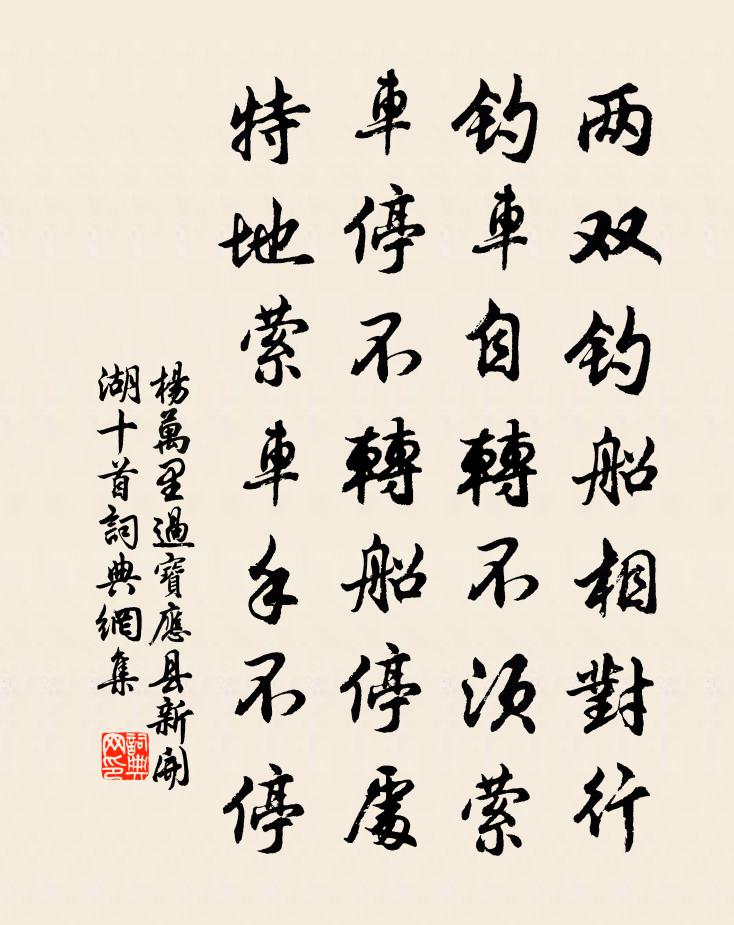 两双钓船相对行
钓車自轉不须萦
車停不轉船停處
特地萦車手不停
楊萬里過寶應县新開
湖十首詞典網集
詞典
网印